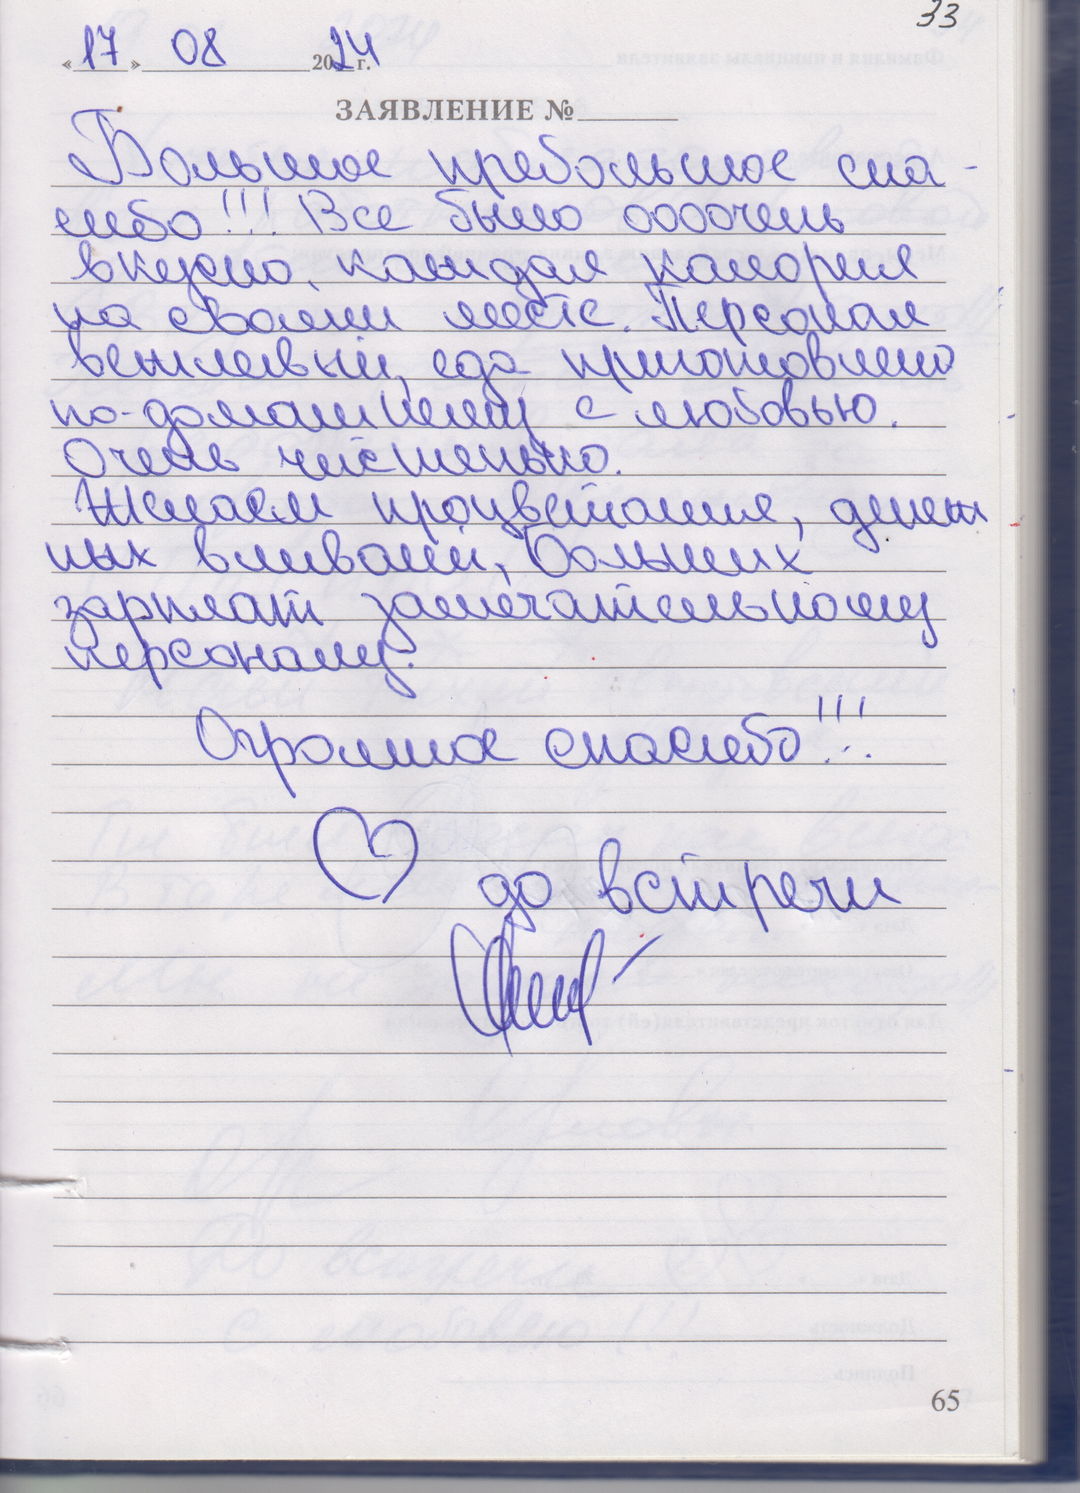 33
«17» 08 2024 г.
ЗАЯВЛЕНИЕ №
Большое пребольшое спа-
сибо!!! Все было ооооочень
вкусно, каждая калория
на своем месте. Персонал
вежливый, еда приготовлено
по-домашнему с любовью.
Очень чистенько.
Желаем процветания, денеж
ных вливаний, больших
зарплат замечательному
персоналу.
Огромное спасибо!!!
до встречи
65